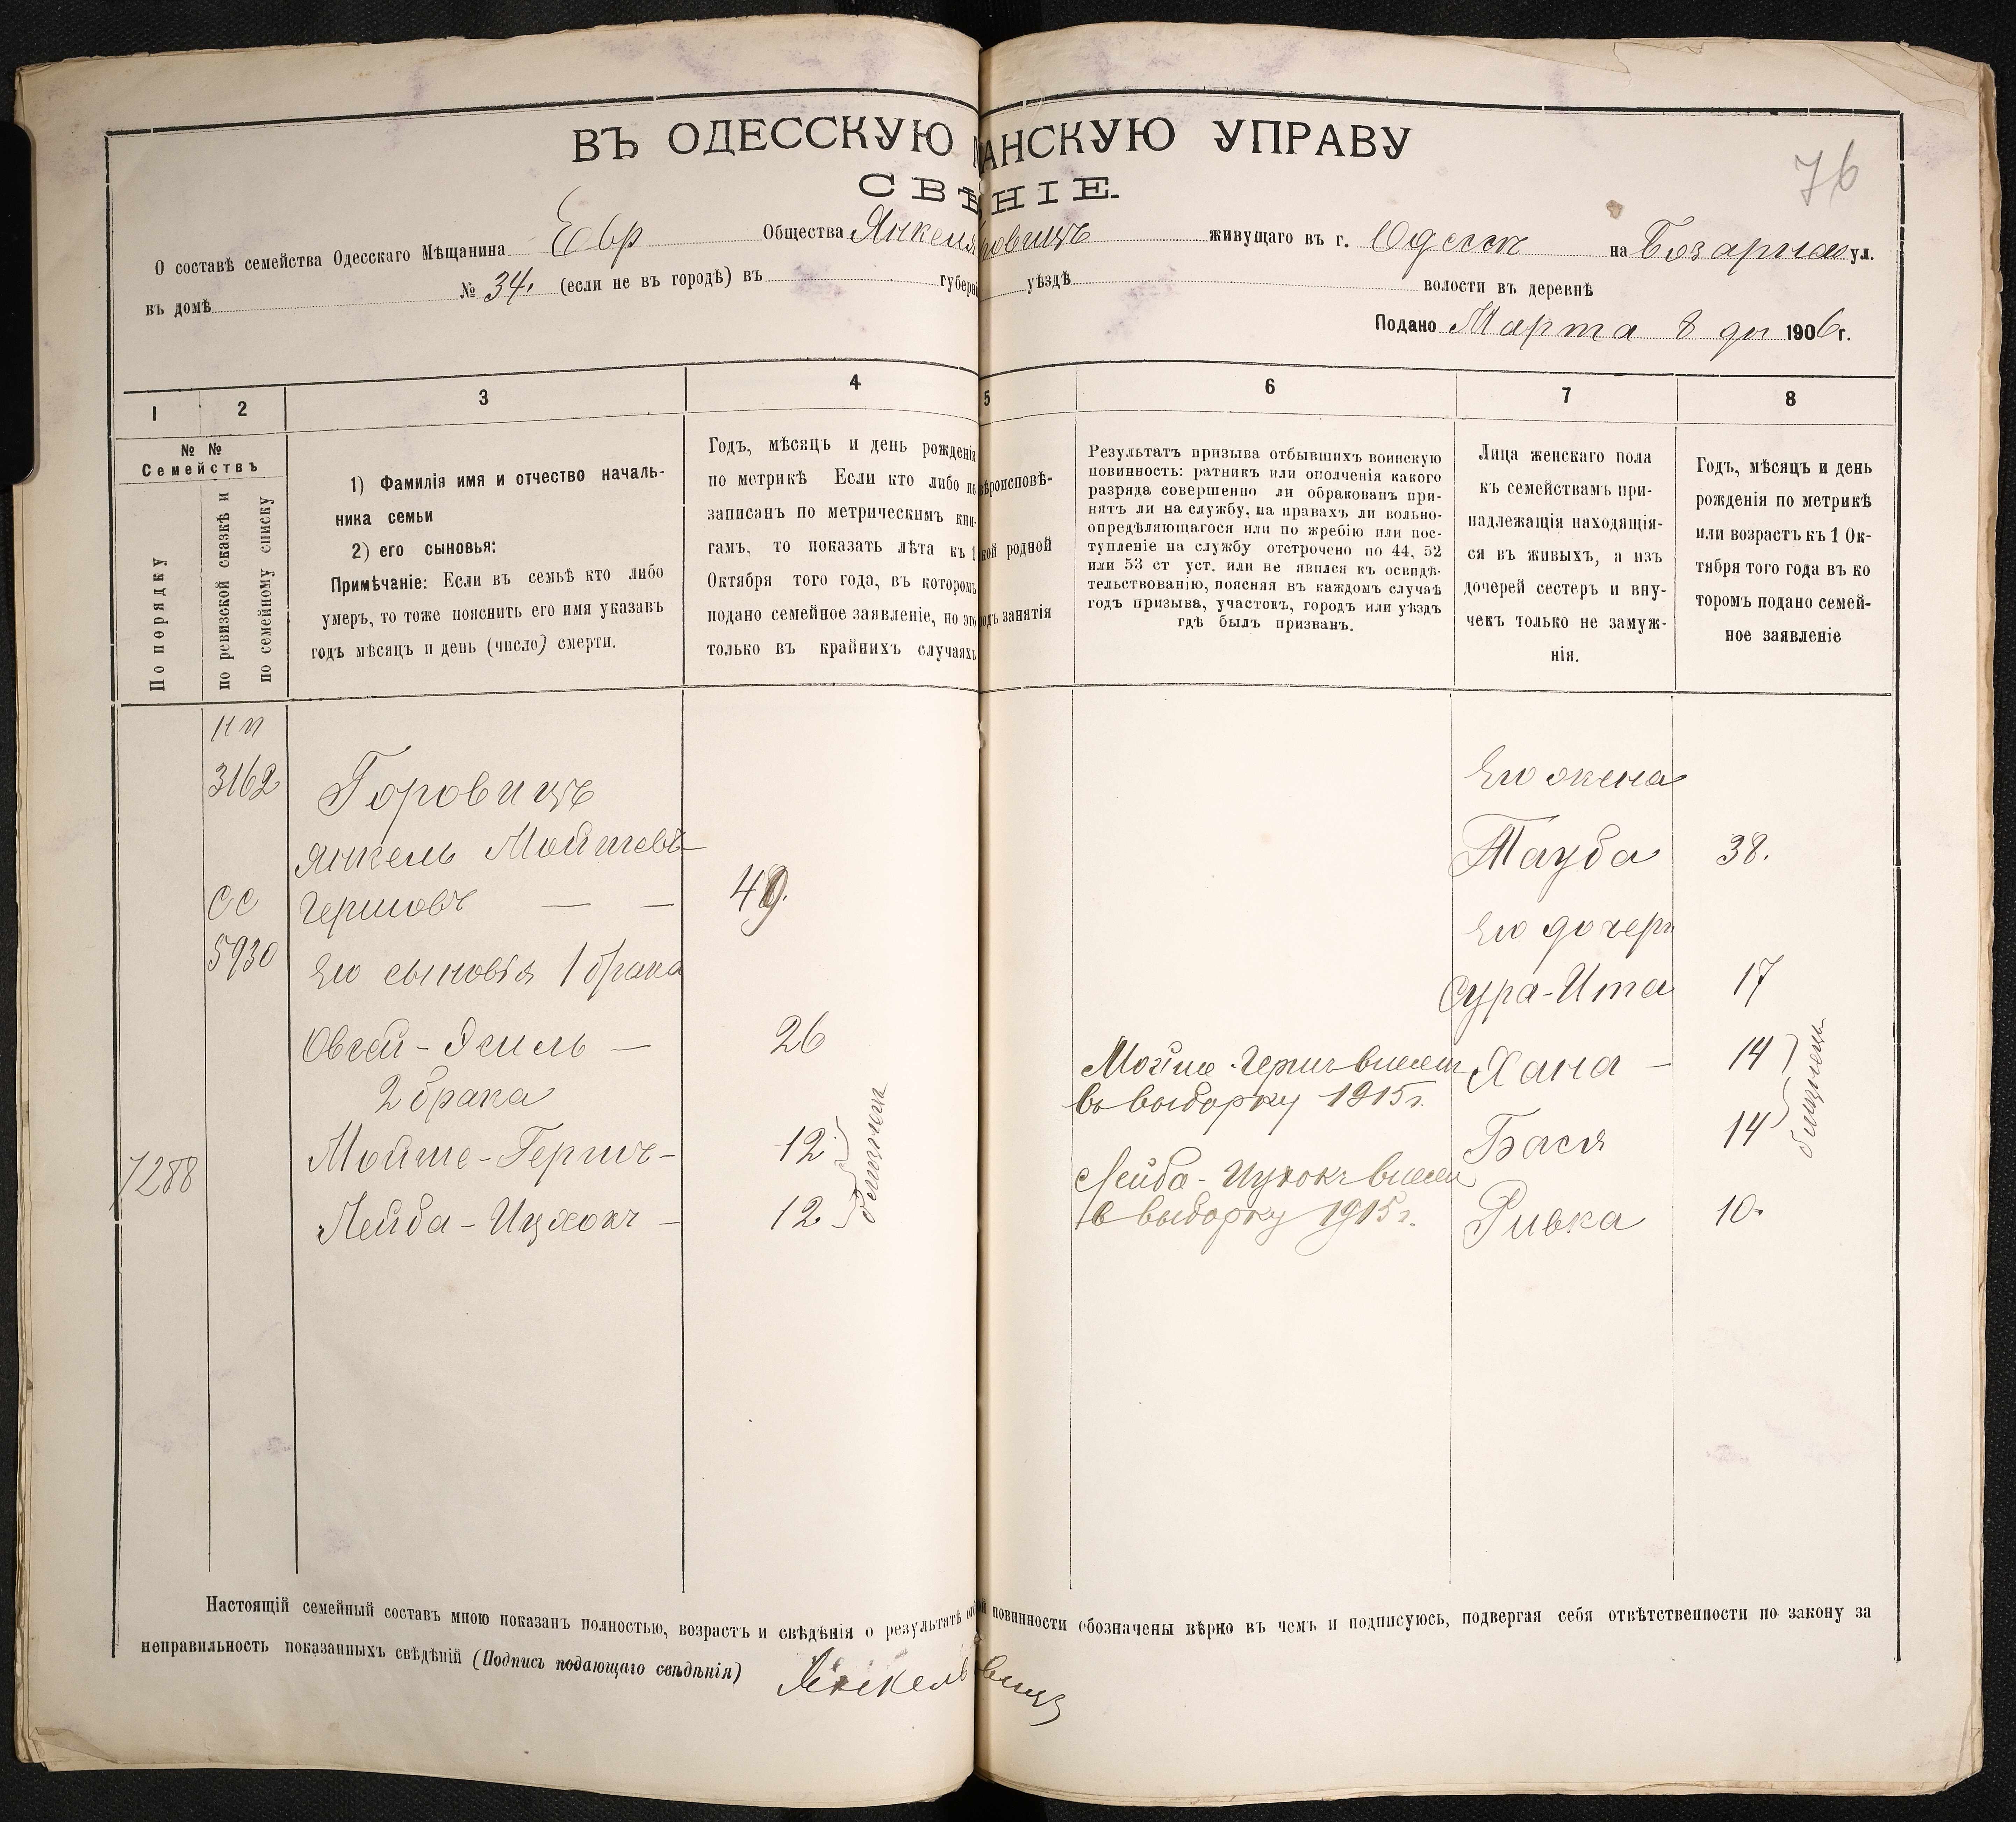 76
ВЪ ОДЕССКУЮ АНСКУЮ УПРАВУ
СВѢНІЕ.
О составѣ семейства Одесскаго Мѣщанина Евр Общества Янкеля ровицъ живущаго въ г. Одессѣ на Базарной ул.
въ домѣ № 34. (если не въ городѣ) въ губерн уѣздѣ волости въ деревнѣ
Подано Марта 8 дн 1906 г.
1 2 3 4 5 6 7 8
№ №
Семействъ
По порядку
по ревизской сказкѣ и
по семейному списку
1) Фамилія имя и отчество началь-
ника семьи
2) его сыновья:
Примѣчаніе: Если въ семьѣ кто либо
умеръ, то тоже пояснить его имя указавъ
годъ мѣсяцъ и день (число) смерти.
Годъ, мѣсяцъ и день рожденія
по метрикѣ Если кто либо не
записанъ по метрическимъ кни-
гамъ, то показать лѣта къ 1
Октября того года, въ которомъ
подано семейное заявленіе, но это
только въ крайнихъ случаяхъ
ѣроисповѣ-
кой родной
одъ занятія
Результатъ призыва отбывшихъ воинскую
повинность: ратникъ или ополченія какого
разряда совершенно ли обракованъ при-
нятъ ли на службу, на правахъ ли вольно-
опредѣляющагося или по жребію или пос-
тупленіе на службу отстрочено по 44, 52
или 53 ст уст. или не явился къ освидѣ-
тельствованію, поясняя въ каждомъ случаѣ
годъ призыва, участокъ, городъ или уѣздъ
гдѣ былъ призванъ.
Лица женскаго пола
къ семействамъ при-
надлежащія находящія-
ся въ живыхъ, а изъ
дочерей сестеръ и вну-
чекъ только не замуж-
нія.
Годъ, мѣсяцъ и день
рожденія по метрикѣ
или возрастъ къ 1 Ок-
тября того года въ ко
торомъ подано семей-
ное заявленіе
3162 Горовицъ
Янкель Мойшевъ-
СС Гершовъ — — 49.
5930 Его сыновья 1 брака
Овсей-Эхиль — 26
2 брака
Мойше-Гершъ- 12
7288
Лейба-Ицхокъ - 12
близнеца
Мойше-Гершъ внесен
въ выборку 1915 г.
Лейба-Ицхокъ внесен
в выборку 1915 г.
Его жена
Тауба 38.
Его дочери
Сура-Ита 17
Хана - 14
Бася 14
близнецы
Ривка 10.
Настоящій семейный составъ мною показанъ полностью, возрастъ и свѣдѣнія о результатѣ от ой повинности обозначены вѣрно въ чемъ и подписуюсь, подвергая себя отвѣтственности по закону за
неправильность показанныхъ свѣдѣній (Подпись подающаго свѣдѣнія) Янкель вицъ